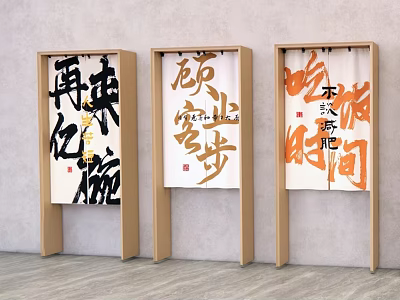 再来
亿碗
顾客
止步
吃饭
时间
不談减肥